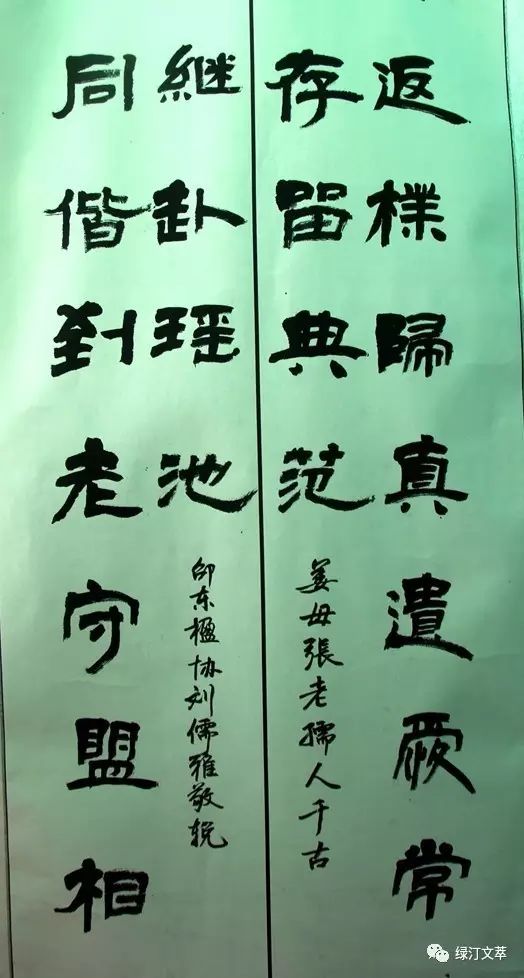 返樸歸真遺厥常
存留典范
姜母張老孺人千古
同偕到老守盟相
継赴瑶池
邵东楹协刘儒雅敬輓
绿汀文萃